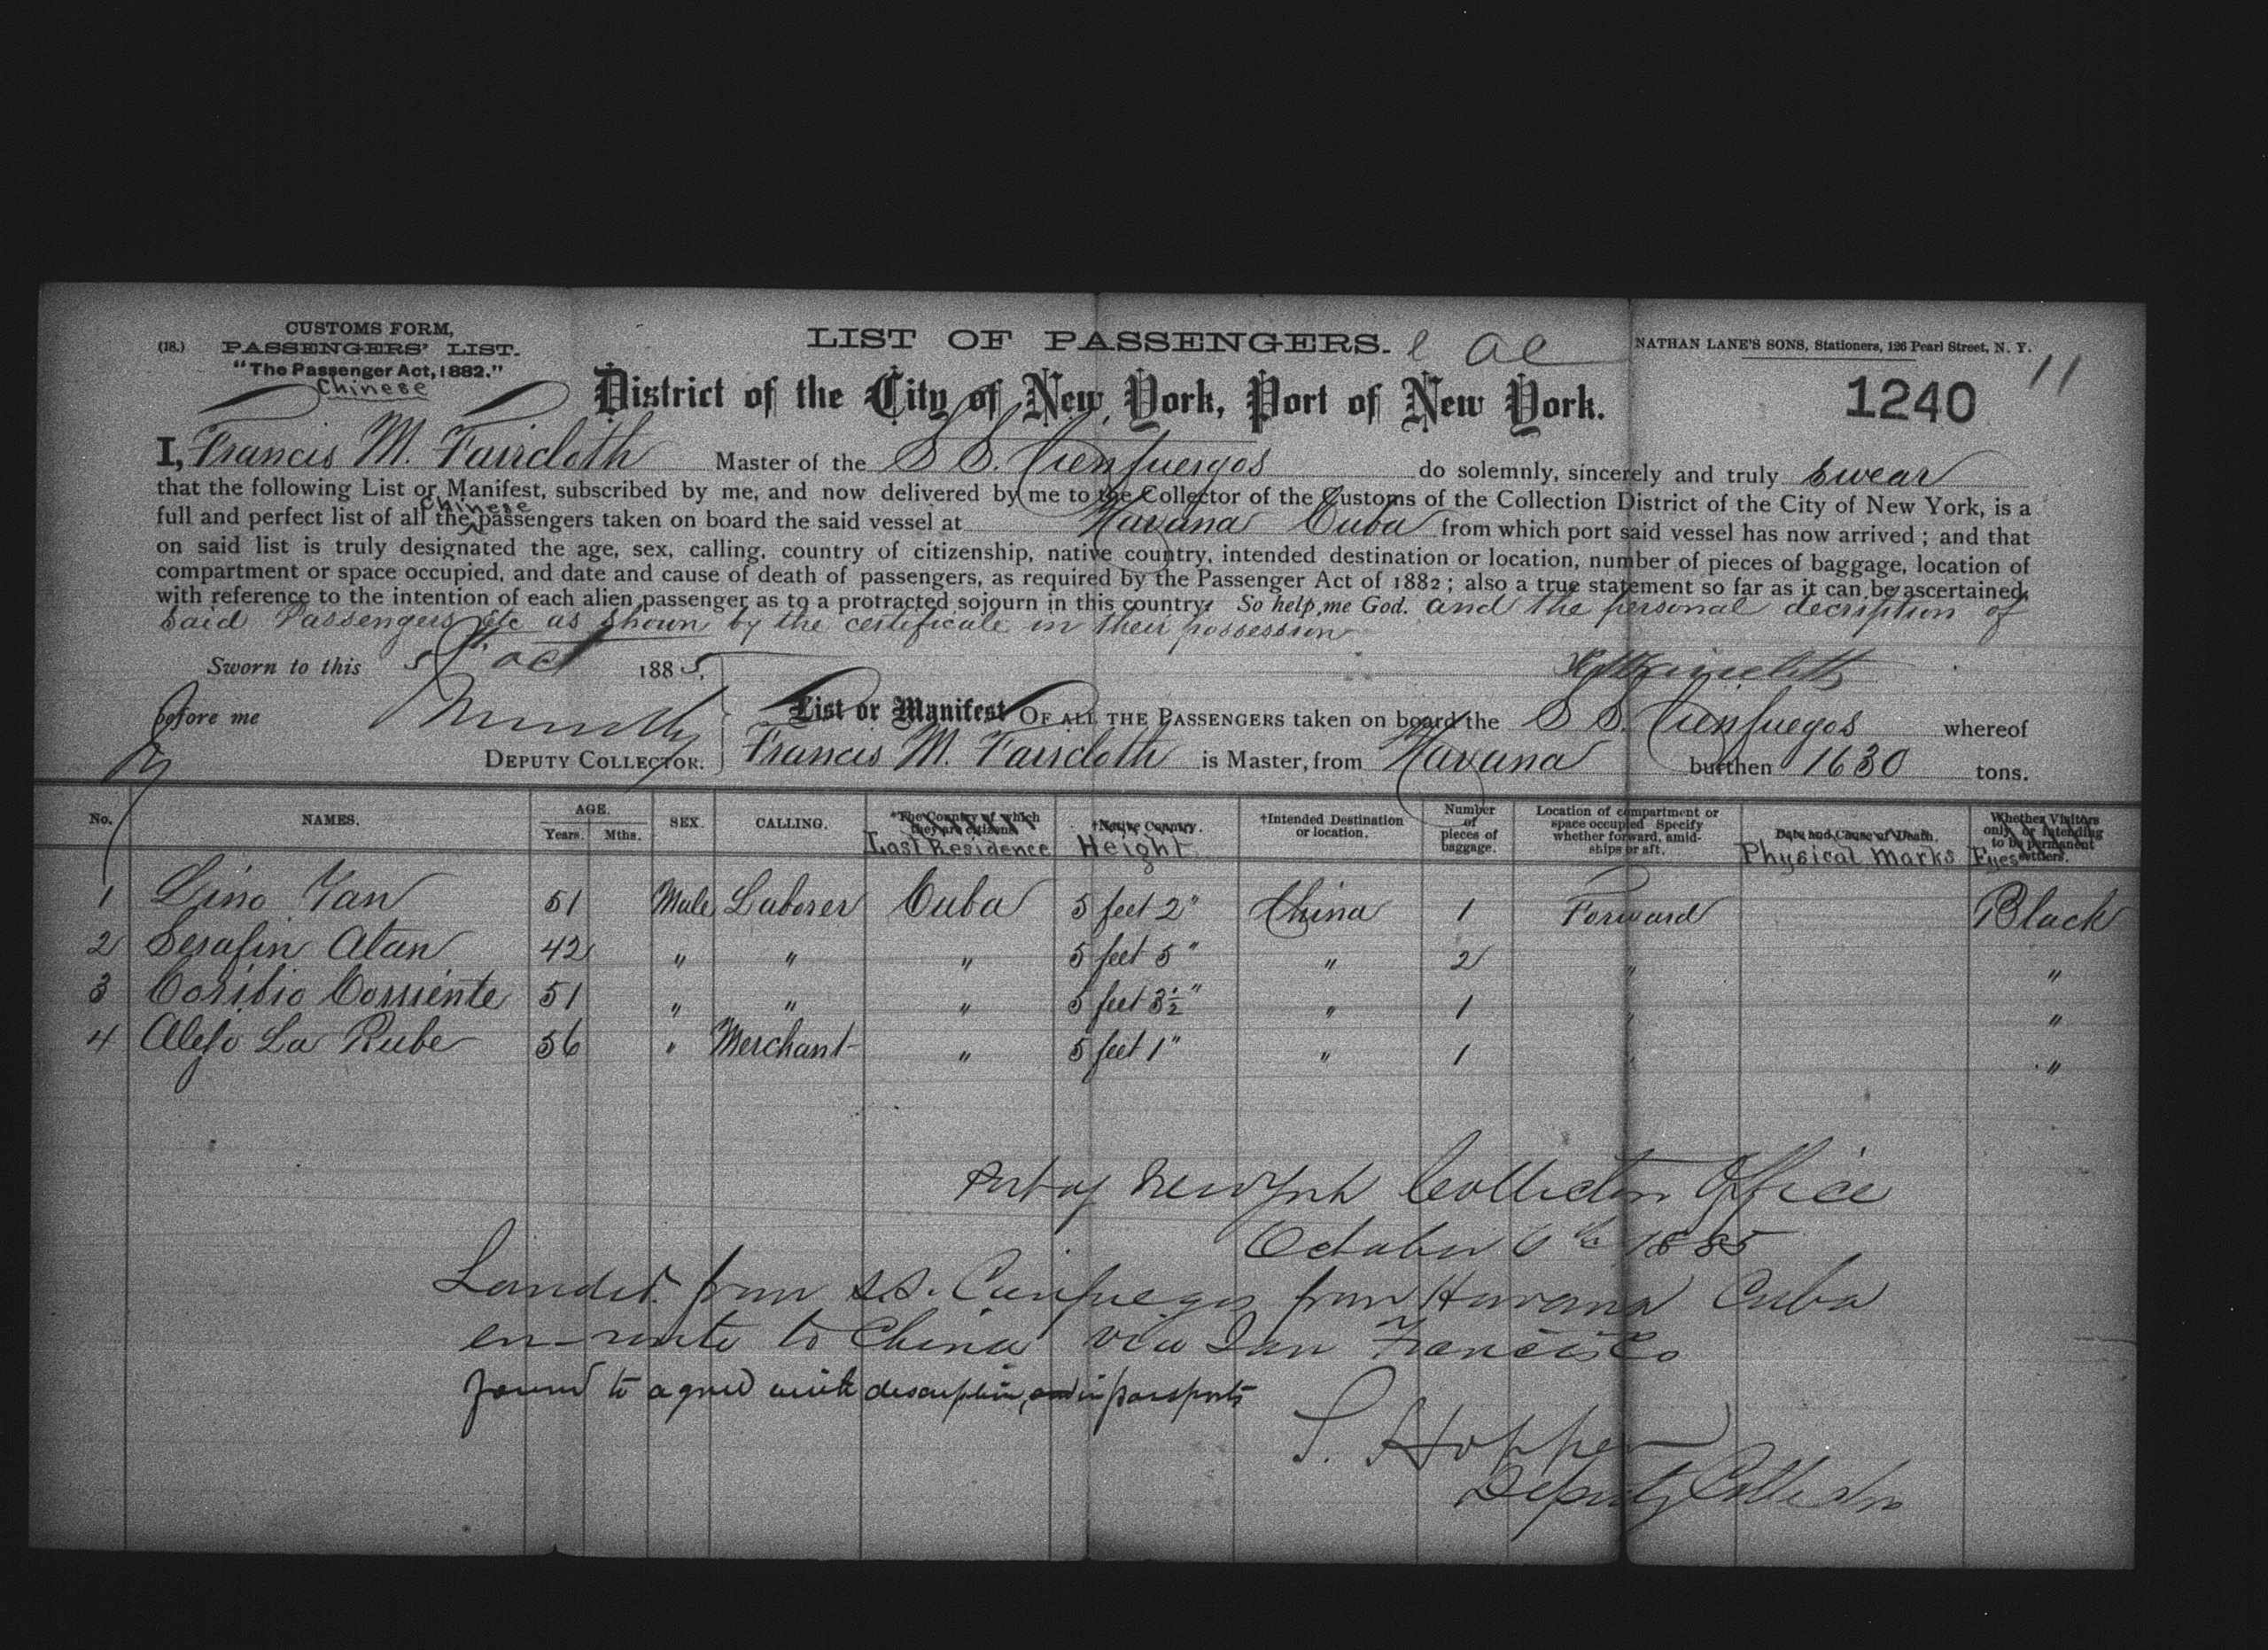 CUSTOMS FORM,
(18.) PASSENGERS' LIST.
"The Passenger Act, 1882."
Chinese
LIST OF PASSENGERS.
NATHAN LANE'S SONS, Stationers, 126 Pearl Street, N. Y.
11
1240
District of the City of New York, Port of New York.
I, Francis M. Faircloth Master of the S S. Cienfuegos do solemnly, sincerely and truly swear
that the following List or Manifest, subscribed by me, and now delivered by me to the Collector of the Customs of the Collection District of the City of New York, is a
full and perfect list of all the Chinese passengers taken on board the said vessel at Havana Cuba from which port said vessel has now arrived ; and that
on said list is truly designated the age, sex, calling, country of citizenship, native country, intended destination or location, number of pieces of baggage, location of
compartment or space occupied, and date and cause of death of passengers, as required by the Passenger Act of 1882 ; also a true statement so far as it can be ascertained,
with reference to the intention of each alien passenger as to a protracted sojourn in this country. So help me God. and the personal decription of
said Passengers etc as shown by the certificate in their possession
Sworn to this 5th Oct 1885.
before me
DEPUTY COLLECTOR.
List or Manifest OF ALL THE PASSENGERS taken on board the S S. Cienfuegos whereof
Francis M. Faircloth is Master, from Havana burthen 1630 tons.
No. NAMES. AGE. Years. Mths. SEX. CALLING. *The Country of which they are citizens Last Residence †Native Country. Height †Intended Destination or location. Number of pieces of baggage. Location of compartment or space occupied Specify whether forward, amidships or aft. Date and Cause of Death. Physical Marks Whether Visitors only, or intending to be permanent settlers. Eyes
1 Lino Yan 51 Male Laborer Cuba 5 feet 2" China 1 Forward Black
2 Serafin Atan 42 " " " 5 feet 5" " 2 " "
3 Toribio Corriente 51 " " " 5 feet 3½" " 1 " "
4 Alejo La Rube 56 " Merchant " 5 feet 1" " 1 " "
Port of New York Collectors Office
October 6th 1885
Landed from S.S. Cienfuegos from Havana Cuba
en-route to China via San Francisco
found to agree with description, in passports
S. Hopper
Deputy Collector